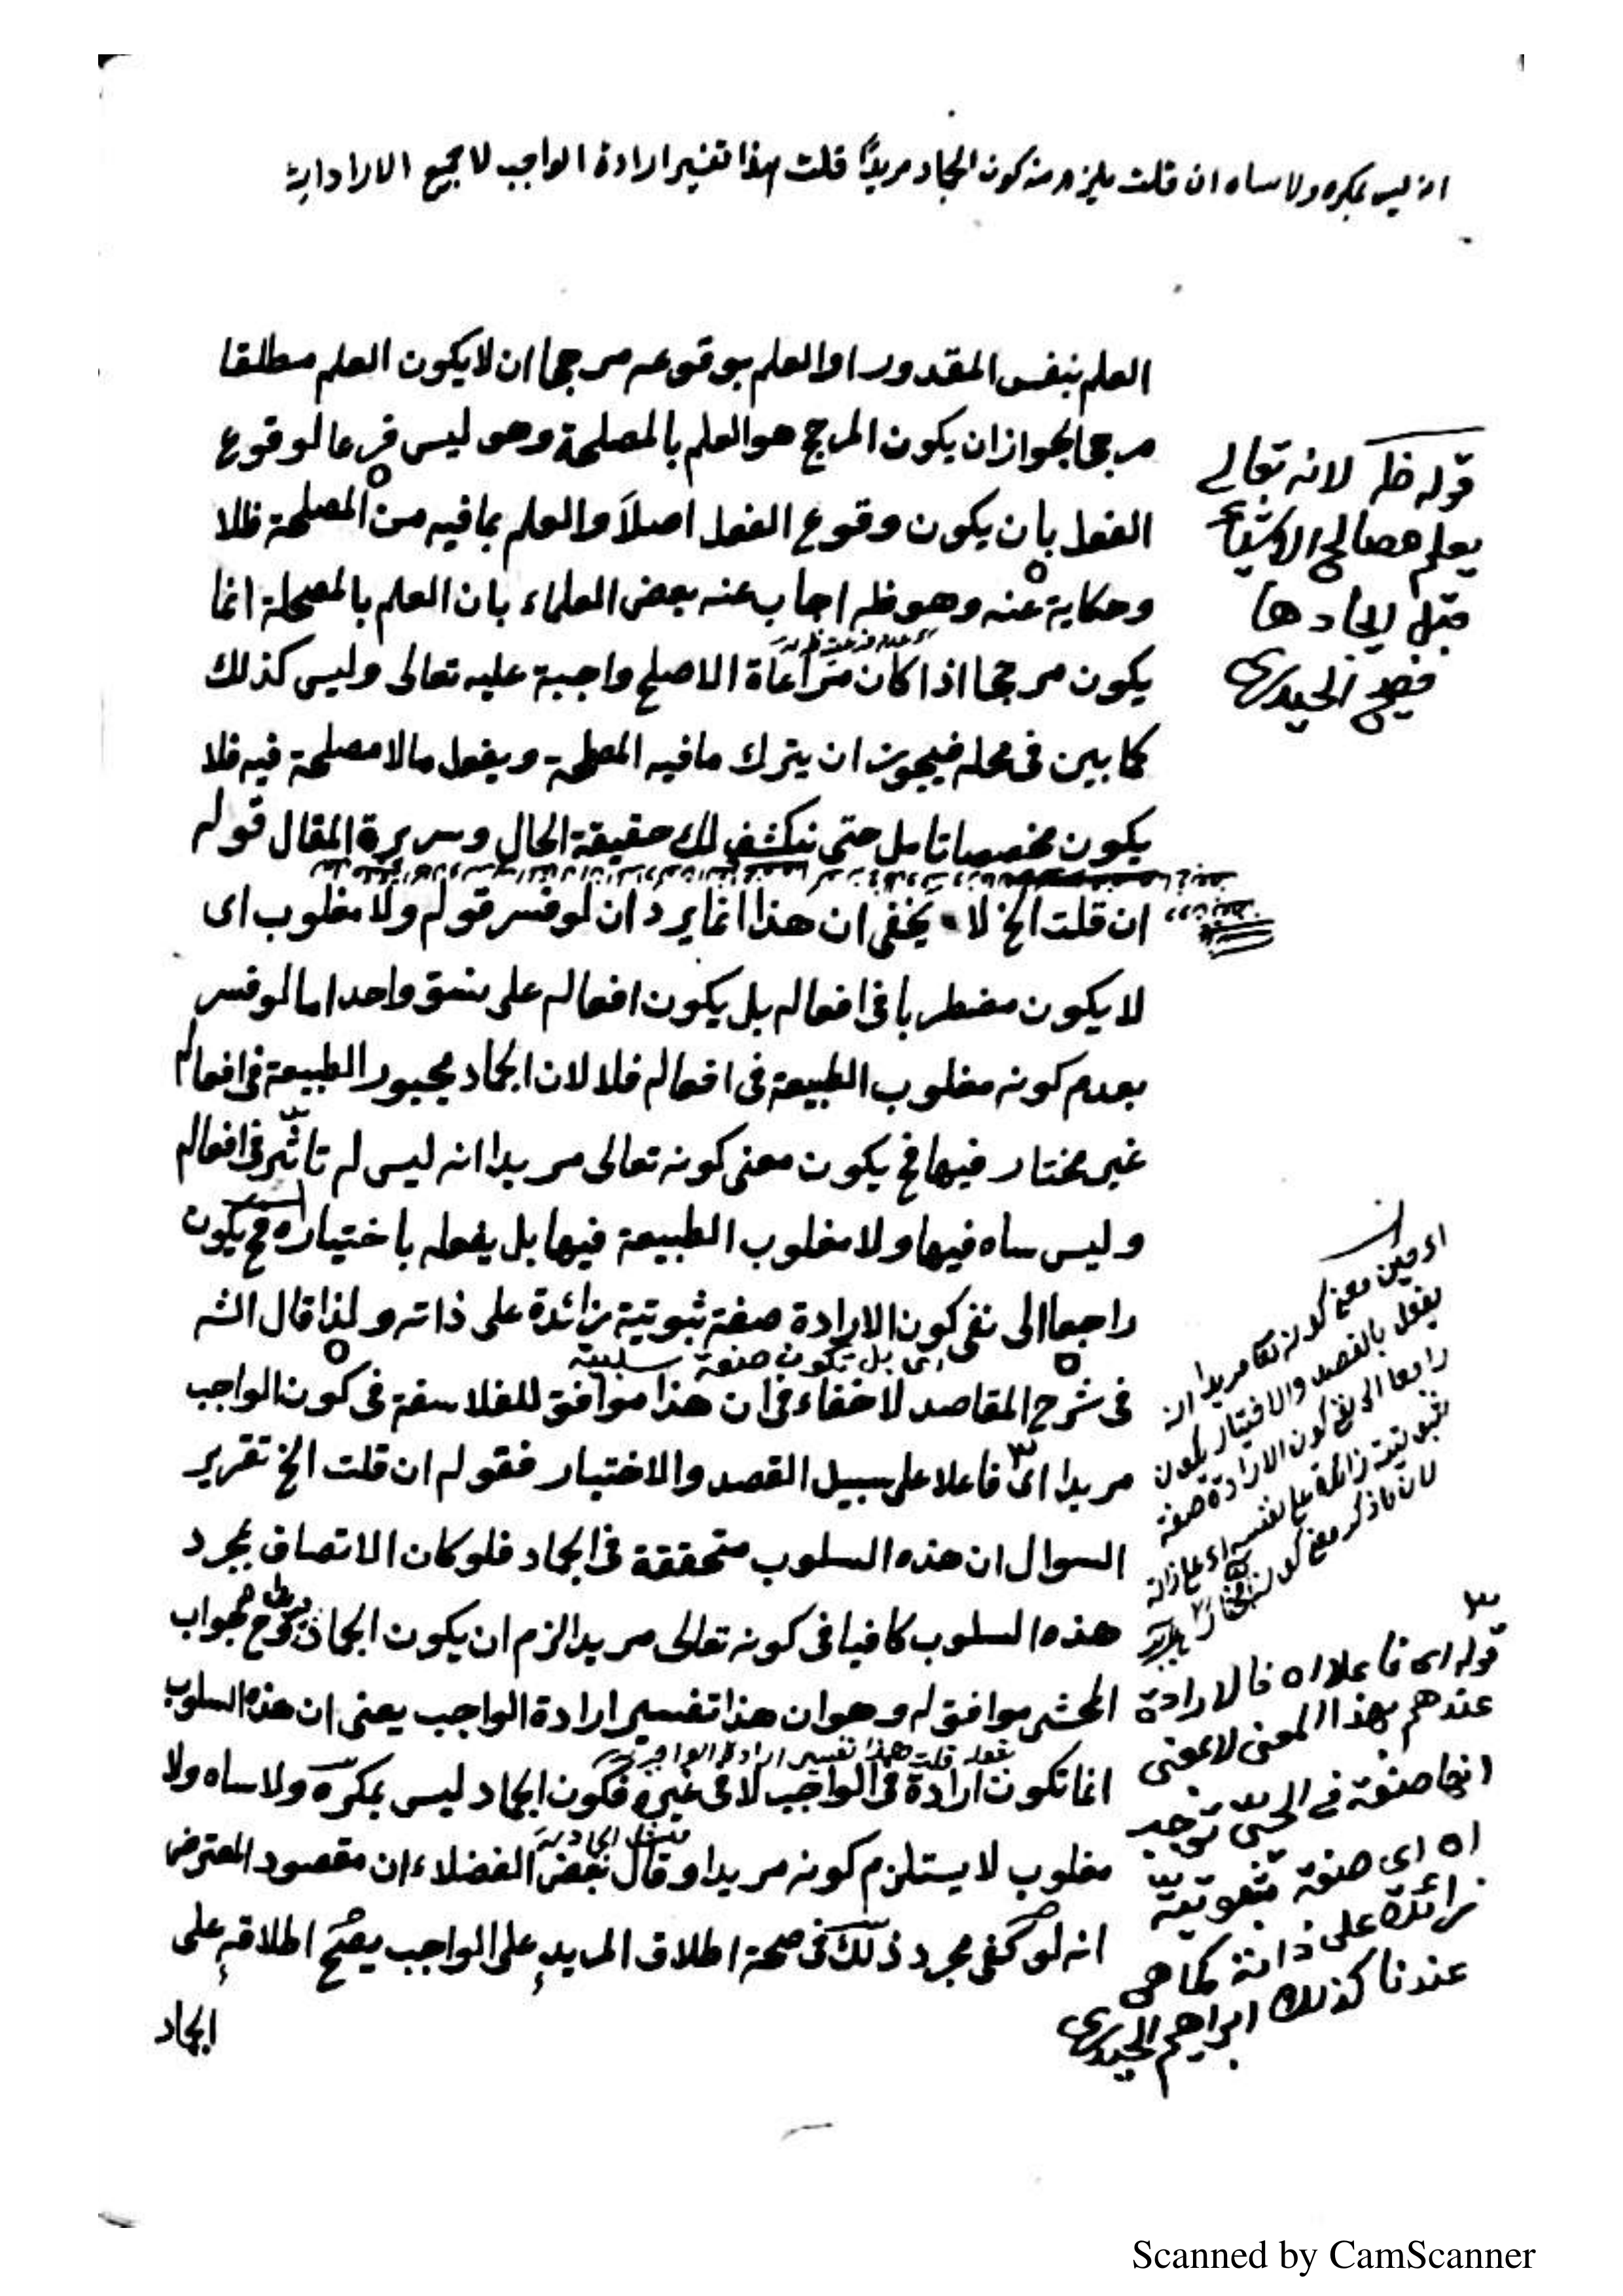 انه ليس بمكره ولا ساه ان قلت يلزم منه كون الجماد مريدًا قلت هذا تفسير ارادة الواجب لا جميع الارادات
العلم بنفس المقدور او العلم بوقوعه مرجحا ان لا يكون العلم مطلقا
مرجحا لجواز ان يكون المرجح هو العلم بالمصلحة وهو ليس فرعا لوقوع
الفعل بان يكون وقوع الفعل اصلاً والعلم بما فيه من المصلحة ظلا
وحكاية عنه وهو ظ اجاب عنه بعض العلماء بان العلم بالمصلحة انما
يكون مرجحا اذا كان مراعاة الاصلح واجبة عليه تعالى وليس كذلك
كما بين فى محله فيجوز ان يترك ما فيه المصلحة ويفعل ما لا مصلحة فيه فلا
يكون مخصصا تامل حتى ينكشف لك حقيقة الحال وسريرة المقال قوله
ان قلت الخ لا يخفى ان هذا انما يرد ان لو فسر قوله ولا مغلوب اى
لا يكون مضطربا فى افعاله بل يكون افعاله على نسق واحد اما لو فسر
بعدم كونه مغلوب الطبيعة فى افعاله فلا لان الجماد مجبور الطبيعة فى افعاله
غير مختار فيها فح يكون معنى كونه تعالى مريدا انه ليس له تاثر فى افعاله
وليس ساه فيها ولا مغلوب الطبيعة فيها بل يفعله باختياره فح يكون
راجعا الى نفى كون الارادة صفة ثبوتية زائدة على ذاته ولذا قال الش
اى بل تكون صفة سلبية
فى شرح المقاصد لا خفاء فى ان هذا موافق للفلاسفة فى كون الواجب
مريدا اى فاعلا على سبيل القصد والاختيار فقوله ان قلت الخ تقرير
السوال ان هذه السلوب متحققة فى الجماد فلو كان الاتصاف بمجرد
هذه السلوب كافيا فى كونه تعالى مريدا لزم ان يكون الجماد جواب
المحشى موافق له وهو ان هذا تفسير ارادة الواجب يعنى ان هذه السلوب
قلت هذا تفسير ارادة الواجب
انما تكون ارادة فى الواجب لا فى غيره فكون الجماد ليس بمكره ولا ساه ولا
مغلوب لا يستلزم كونه مريدا وقال بعض الفضلاء ان مقصود المعترض
انه لو كفى مجرد ذلك فى صحة اطلاق المريد على الواجب يصح اطلاقه على
الجماد
قوله ظ لانه تعالى
يعلم مصالح الاشياء
قبل ايجادها
فصيح الحيدرى
اى حين معنى كونه تعا مريدا انه
يفعل بالقصد والاختيار يكون
راجعا الى نفى كون الارادة صفة
ثبوتية زائدة على نفسه اى على ذاته
لان ما ذكر معنى كونه
قوله اى فاعلا اه فالارادة
عندهم بهذا المعنى لا بمعنى
انها صفة فى الحى توجب
اه اى صفة ثبوتية
زائدة على ذاته كما هى
عندنا كذلك ابراهيم الحيدرى
Scanned by CamScanner